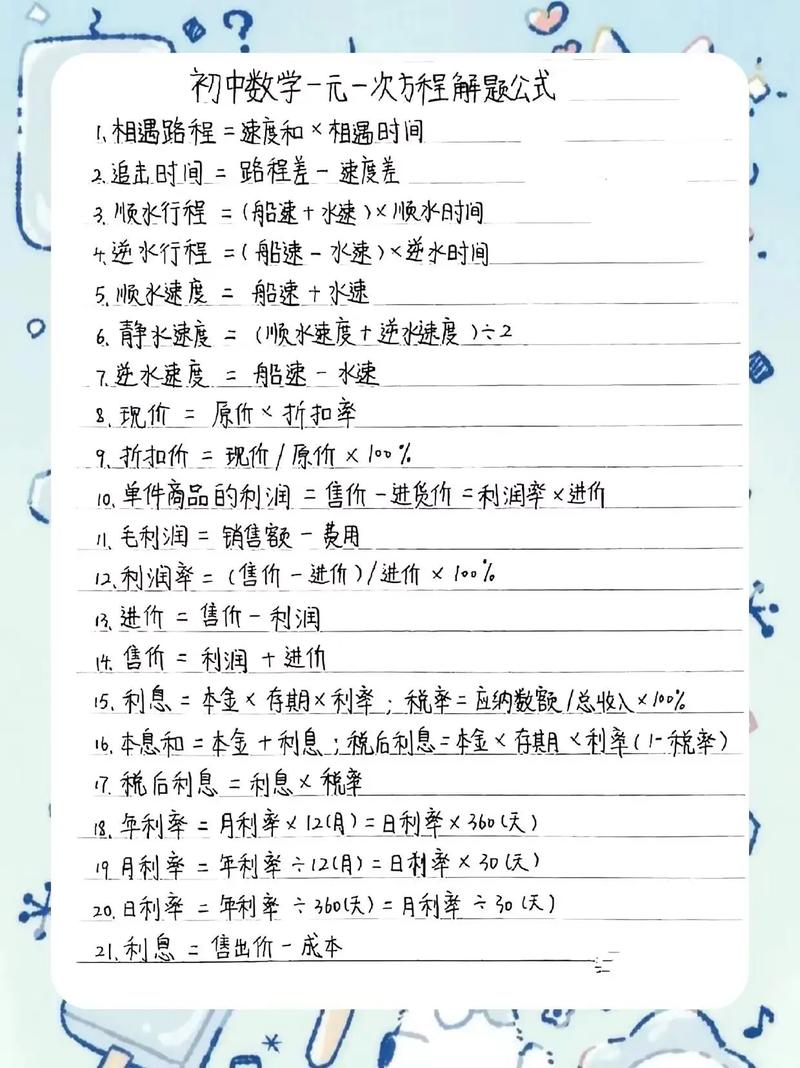 初中数学一元一次方程解题公式
1.相遇路程=速度和×相遇时间
2.追击时间=路程差-速度差
3.顺水行程=(船速+水速)×顺水时间
4.逆水行程=(船速-水速)×逆水时间
5.顺水速度=船速+水速
6.静水速度=(顺水速度+逆水速度)÷2
7.逆水速度=船速-水速
8.现价=原价×折扣率
9.折扣价=现价/原价×100%
10.单件商品的利润=售价-进货价=利润率×进价
11.毛利润=销售额-费用
12.利润率=(售价-进价)/进价×100%
13.进价=售价-利润
14.售价=利润+进价
15.利息=本金×存期×利率;税率=应纳数额/总收入×100%
16.本息和=本金+利息;税后利息=本金×存期×利率(1-税率)
17.税后利息=利息×税率
18.年利率=月利率×12(月)=日利率×360(天)
19月利率=年利率÷12(月)=日利率×30(天)
20.日利率=年利率÷360(天)=月利率÷30(天)
21.利息=售出价-成本